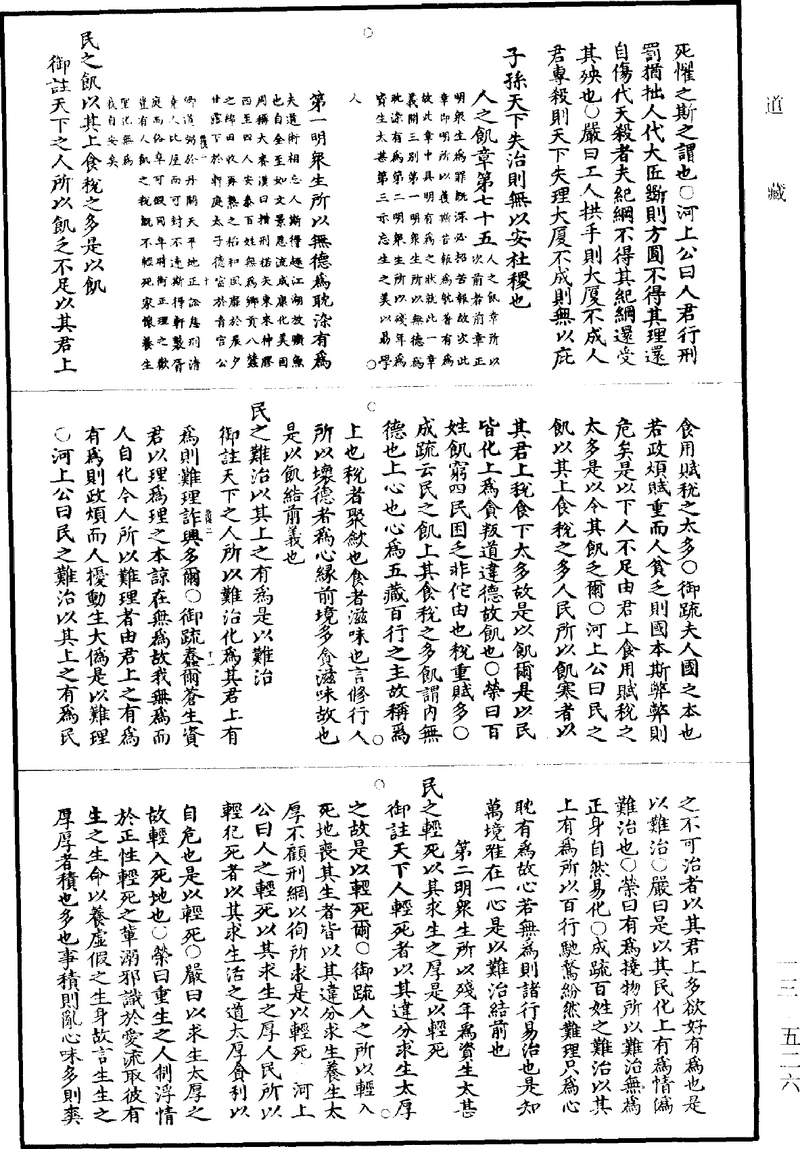 道藏
一三·五二六
死懼之斯之謂也○河上公曰人君行刑
罰猶拙人代大匠斲則方圓不得其理還
自傷代天殺者失紀綱不得其紀綱還受
其殃也○嚴曰工人拱手則大厦不成人
君專殺則天下失理大厦不成則無以庇
子孫天下失治則無以安社稷也
人之飢章第七十五
人之飢章所以
次前者前章正
明衆生為罪既深必招苦報故次此
章即明所以獲斯苦報為躭著有為
故此章中具明有為之狀就此一章
義開三別第一明衆生所以無德為
躭染有為第二明衆生所以殘年為
資生太甚第三示忘生之美以易學
人
第一明衆生所以無德為躭染有為
夫道術相忘人斯得
也自金至如文景恩流成康化美囹
民之飢以其上食稅之多是以飢
御註天下之人所以飢乏不足以其君上
食用賦稅之太多○御疏夫人國之本也
若政煩賦重而人貧乏則國本斯弊弊則
危矣是以下人不足由君上食用賦稅之
太多是以令其飢乏爾○河上公曰民之
飢以其上食稅之多人民所以飢寒者以
其君上稅食下太多故是以飢爾是以民
皆化上為食叛道違德故飢也○榮曰百
姓飢窮四民困乏非佗由也稅重賦多○
成疏云民之飢上其食稅之多飢謂內無
德也上心也心為五藏百行之主故稱為
上也稅者聚斂也食者滋味也言修行人
所以壞德者為心緣前境多貪滋味故也
是以飢結前義也
民之難治以其上之有為是以難治
御註天下之人所以難治化為其君上有
為則難理詐興多爾○御疏蠢爾蒼生資
君以理為理之本諒在無為故我無為而
人自化今人所以難理者由君上之有為
有為則政煩而人擾動生大偽是以難理
○河上公曰民之難治以其上之有為民
之不可治者以其君上多欲好有為也是
以難治○嚴曰是以其民化上有為情偽
難治也○榮曰有為撓物所以難治無為
正身自然易化○成疏百姓之難治以其
上有為所以百行馳騖紛然難理只為心
躭有為故心若無為則諸行易治也是知
萬境雖在一心是以難治結前也
第二明衆生所以殘年為資生太甚
民之輕死以其求生之厚是以輕死
御註天下人輕死者以其違分求生太厚
之故是以輕死爾○御疏人之所以輕入
死地喪其生者皆以其違分求生養生太
厚不顧刑網以徇所求是以輕死 河上
公曰人之輕死以其求生之厚人民所以
輕犯死者以其求生活之道太厚貪利以
自危也是以輕死○嚴曰以求生太厚之
故輕入死地也○榮曰重生之人制浮情
於正性輕死之輩溺邪識於愛流取彼有
生之生命以養虛假之生身故言生生之
厚厚者積也多也事積則亂心味多則爽